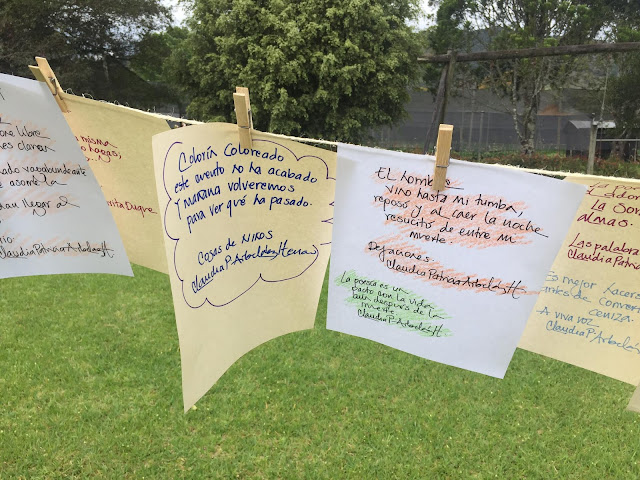 libre
vagabundeante
asomé la
llegar al
Claudia Patricia Arbeláez H
misma
hagas,
rita Duque
Colorín Coloreado
este cuento no ha acabado
Y mañana volveremos
para ver qué ha pasado.
Cosas de NIÑOS
Claudia P. Arbeláez Henao
El hombre
vino hasta mi tumba,
reposó y al caer la noche
resucitó de entre mi
muerte.
Dejaciones
Claudia Patricia Arbeláez H
La poesía es un
pacto con la vida
aún después de la
muerte
Claudia P. Arbeláez H
almas.
Las palabra
Claudia Pat
mejor hacers
de convert
ceniza.
A viva voz
Claudia P. Arb